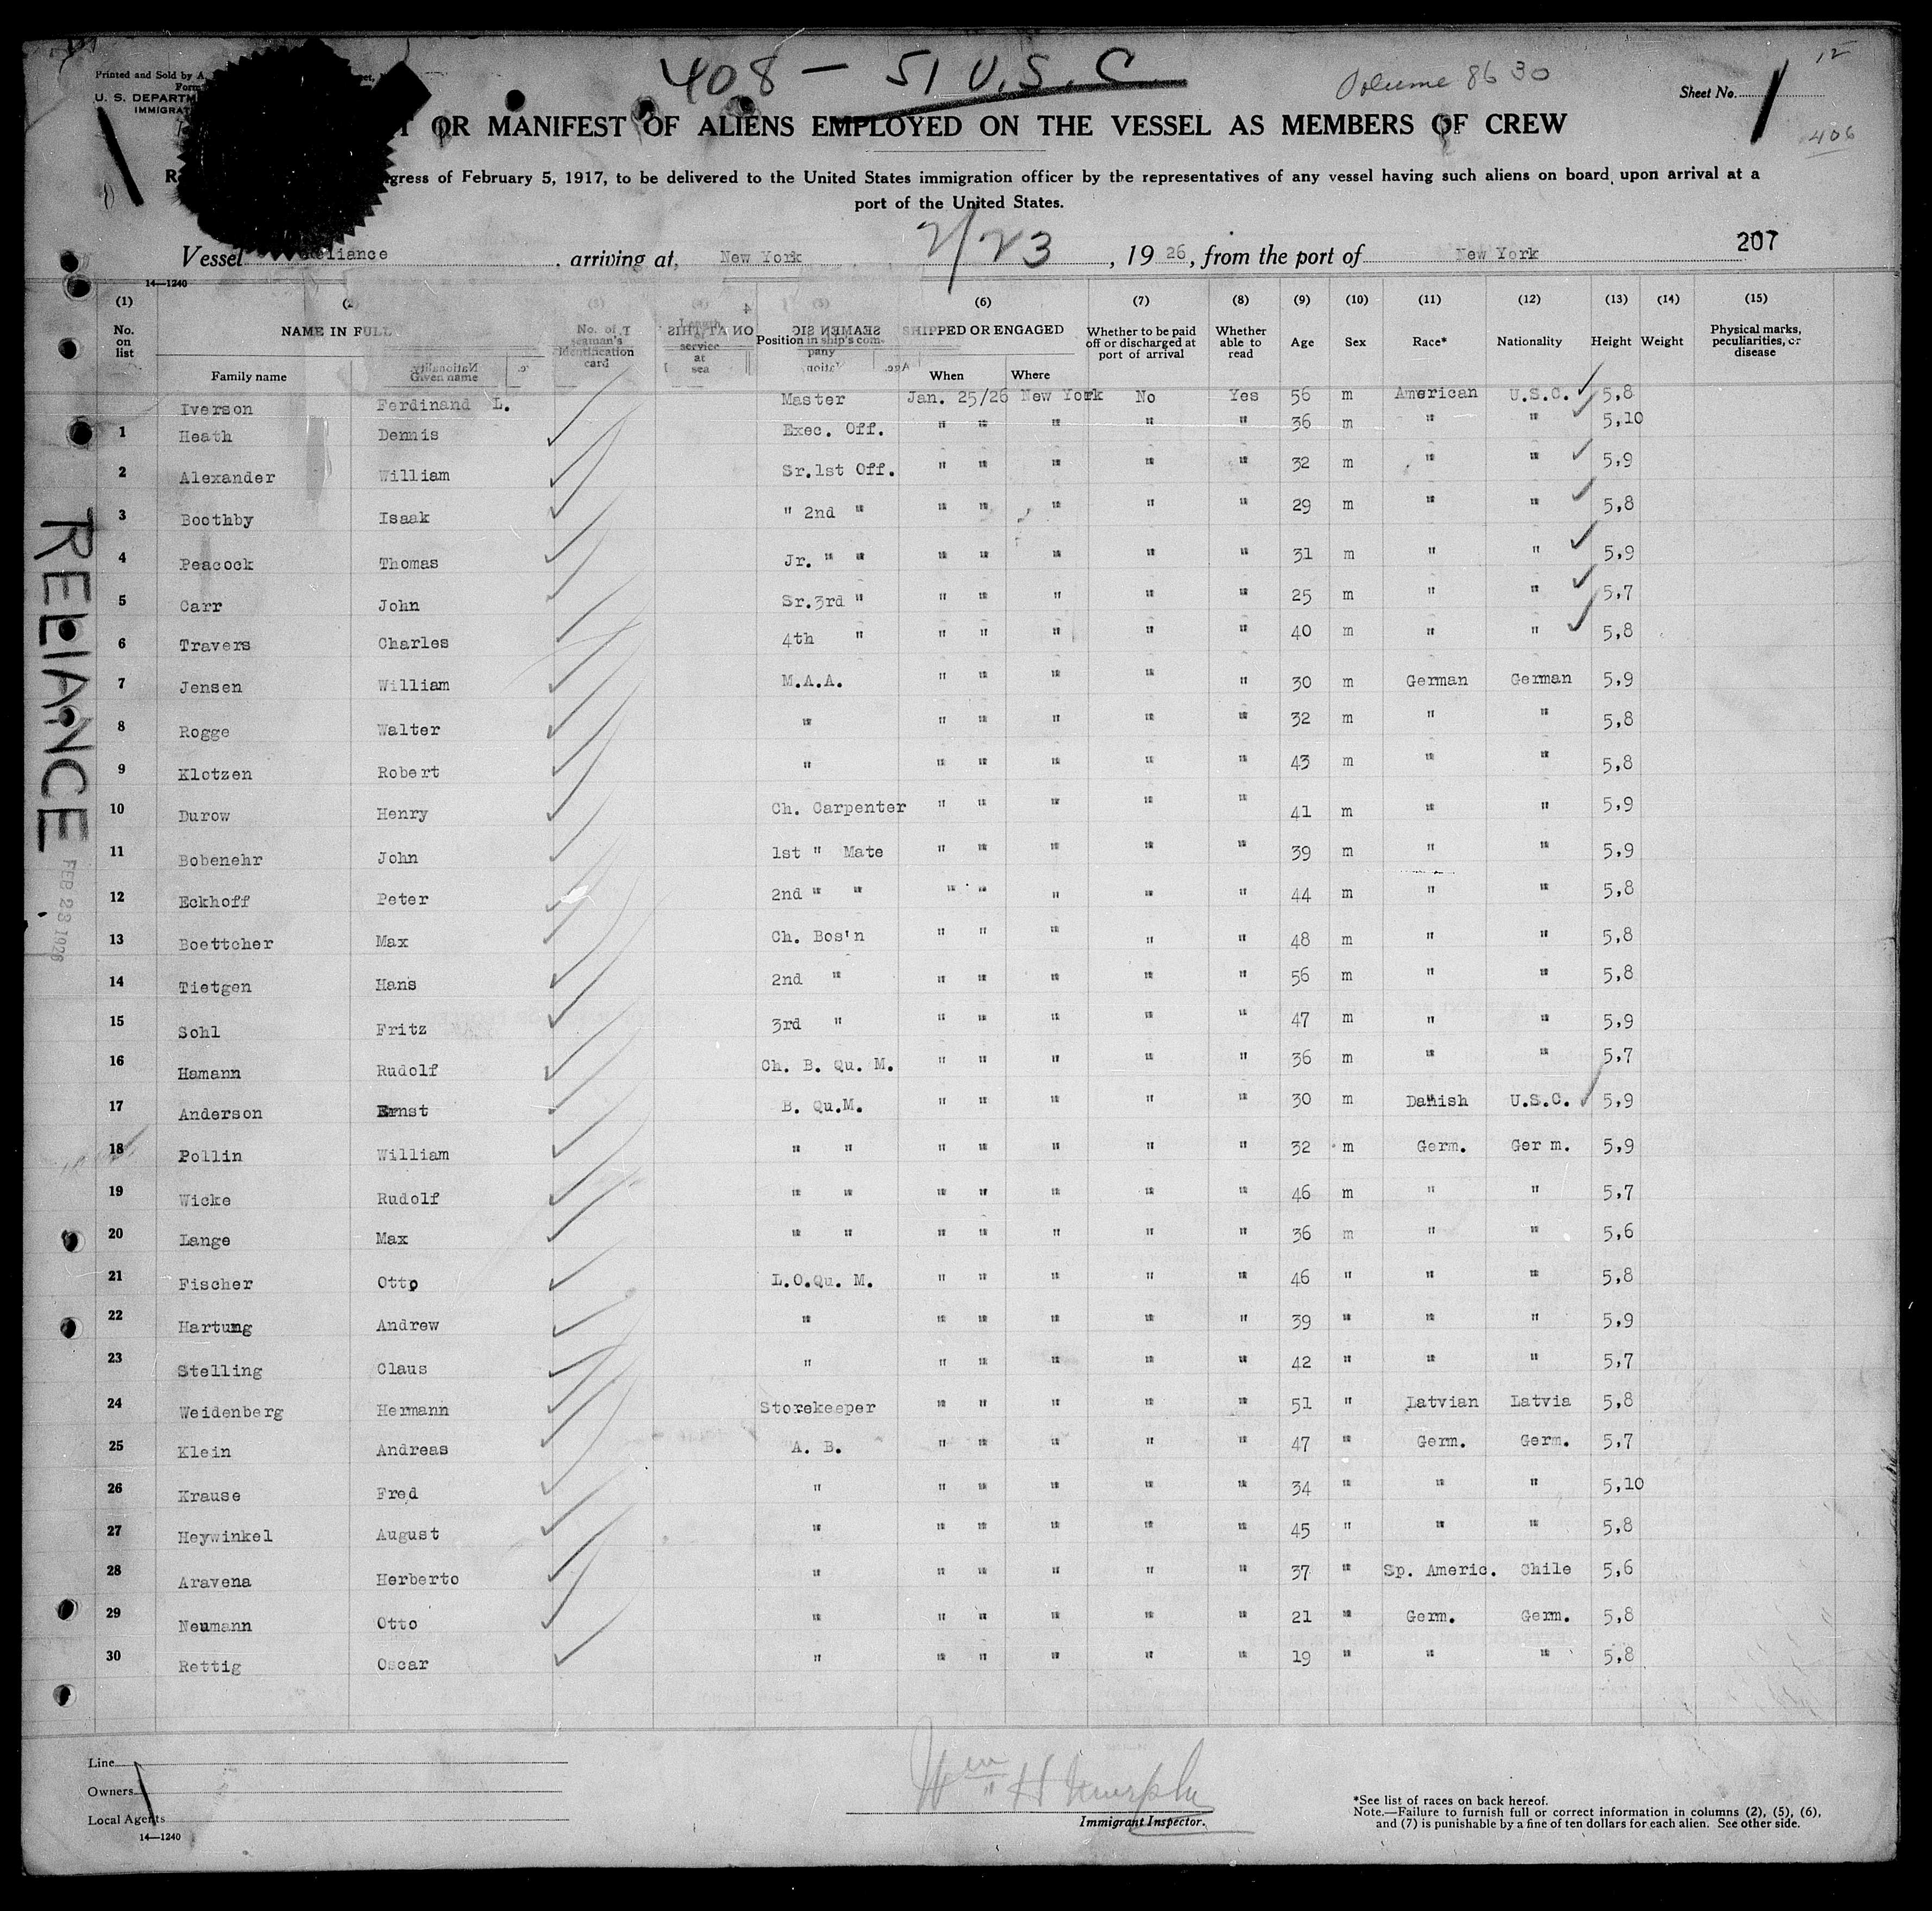 408 — 51 U.S.C.
Volume 8630
Sheet No. 1
12
406
Printed and Sold by A.
Form
U. S. DEPARTM
IMMIGRAT
OR MANIFEST OF ALIENS EMPLOYED ON THE VESSEL AS MEMBERS OF CREW
gress of February 5, 1917, to be delivered to the United States immigration officer by the representatives of any vessel having such aliens on board, upon arrival at a
port of the United States.
Vessel Reliance, arriving at, New York 2/23, 19 26, from the port of New York 207
14—1240
(1) (2) (3) (4) (5) (6) (7) (8) (9) (10) (11) (12) (13) (14) (15)
No. on list NAME IN FULL Family name Given name No. of seaman's identification card Length of service at sea Position in ship's company SHIPPED OR ENGAGED When Where Whether to be paid off or discharged at port of arrival Whether able to read Age Sex Race* Nationality Height Weight Physical marks, peculiarities, or disease
Iverson Ferdinand L. Master Jan. 25/26 New York No Yes 56 m American U.S.C. 5,8
1 Heath Dennis Exec. Off. " " " " " 36 m " " 5,10
2 Alexander William Sr.1st Off. " " " " " 32 m " " 5,9
3 Boothby Isaak " 2nd " " " " " " 29 m " " 5,8
4 Peacock Thomas Jr. " " " " " " " 31 m " " 5,9
5 Carr John Sr.3rd " " " " " " 25 m " " 5,7
6 Travers Charles 4th " " " " " " 40 m " " 5,8
7 Jensen William M.A.A. " " " " " 30 m German German 5,9
8 Rogge Walter " " " " " " 32 m " " 5,8
9 Klotzen Robert " " " " " " 43 m " " 5,8
10 Durow Henry Ch. Carpenter " " " " " 41 m " " 5,9
11 Bobenehr John 1st " Mate " " " " " 39 m " " 5,9
12 Eckhoff Peter 2nd " " " " " " " 44 m " " 5,8
13 Boettcher Max Ch. Bos'n " " " " " 48 m " " 5,8
14 Tietgen Hans 2nd " " " " " " 56 m " " 5,8
15 Sohl Fritz 3rd " " " " " " 47 m " " 5,9
16 Hamann Rudolf Ch. B. Qu. M. " " " " " 36 m " " 5,7
17 Anderson Ernst B. Qu.M. " " " " " 30 m Danish U.S.C. 5,9
18 Pollin William " " " " " " " 32 m Germ. Ger m. 5,9
19 Wicke Rudolf " " " " " " " 46 m " " 5,7
20 Lange Max " " " " " " " 36 m " " 5,6
21 Fischer Otto L.O.Qu. M. " " " " " 46 " " " 5,8
22 Hartung Andrew " " " " " " 39 " " " 5,9
23 Stelling Claus " " " " " " 42 " " " 5,7
24 Weidenberg Hermann Storekeeper " " " " " 51 " Latvian Latvia 5,8
25 Klein Andreas A. B. " " " " " 47 " Germ. Germ. 5,7
26 Krause Fred " " " " " " 34 " " " 5,10
27 Heywinkel August " " " " " " 45 " " " 5,8
28 Aravena Herberto " " " " " " 37 " Sp. Americ. Chile 5,6
29 Neumann Otto " " " " " " 21 " Germ. Germ. 5,8
30 Rettig Oscar " " " " " " 19 " " " 5,8
RELIANCE
FEB 23 1926
Line
Owners
Local Agents
14—1240
Wm H Murphy
Immigrant Inspector.
*See list of races on back hereof.
Note.—Failure to furnish full or correct information in columns (2), (5), (6),
and (7) is punishable by a fine of ten dollars for each alien. See other side.